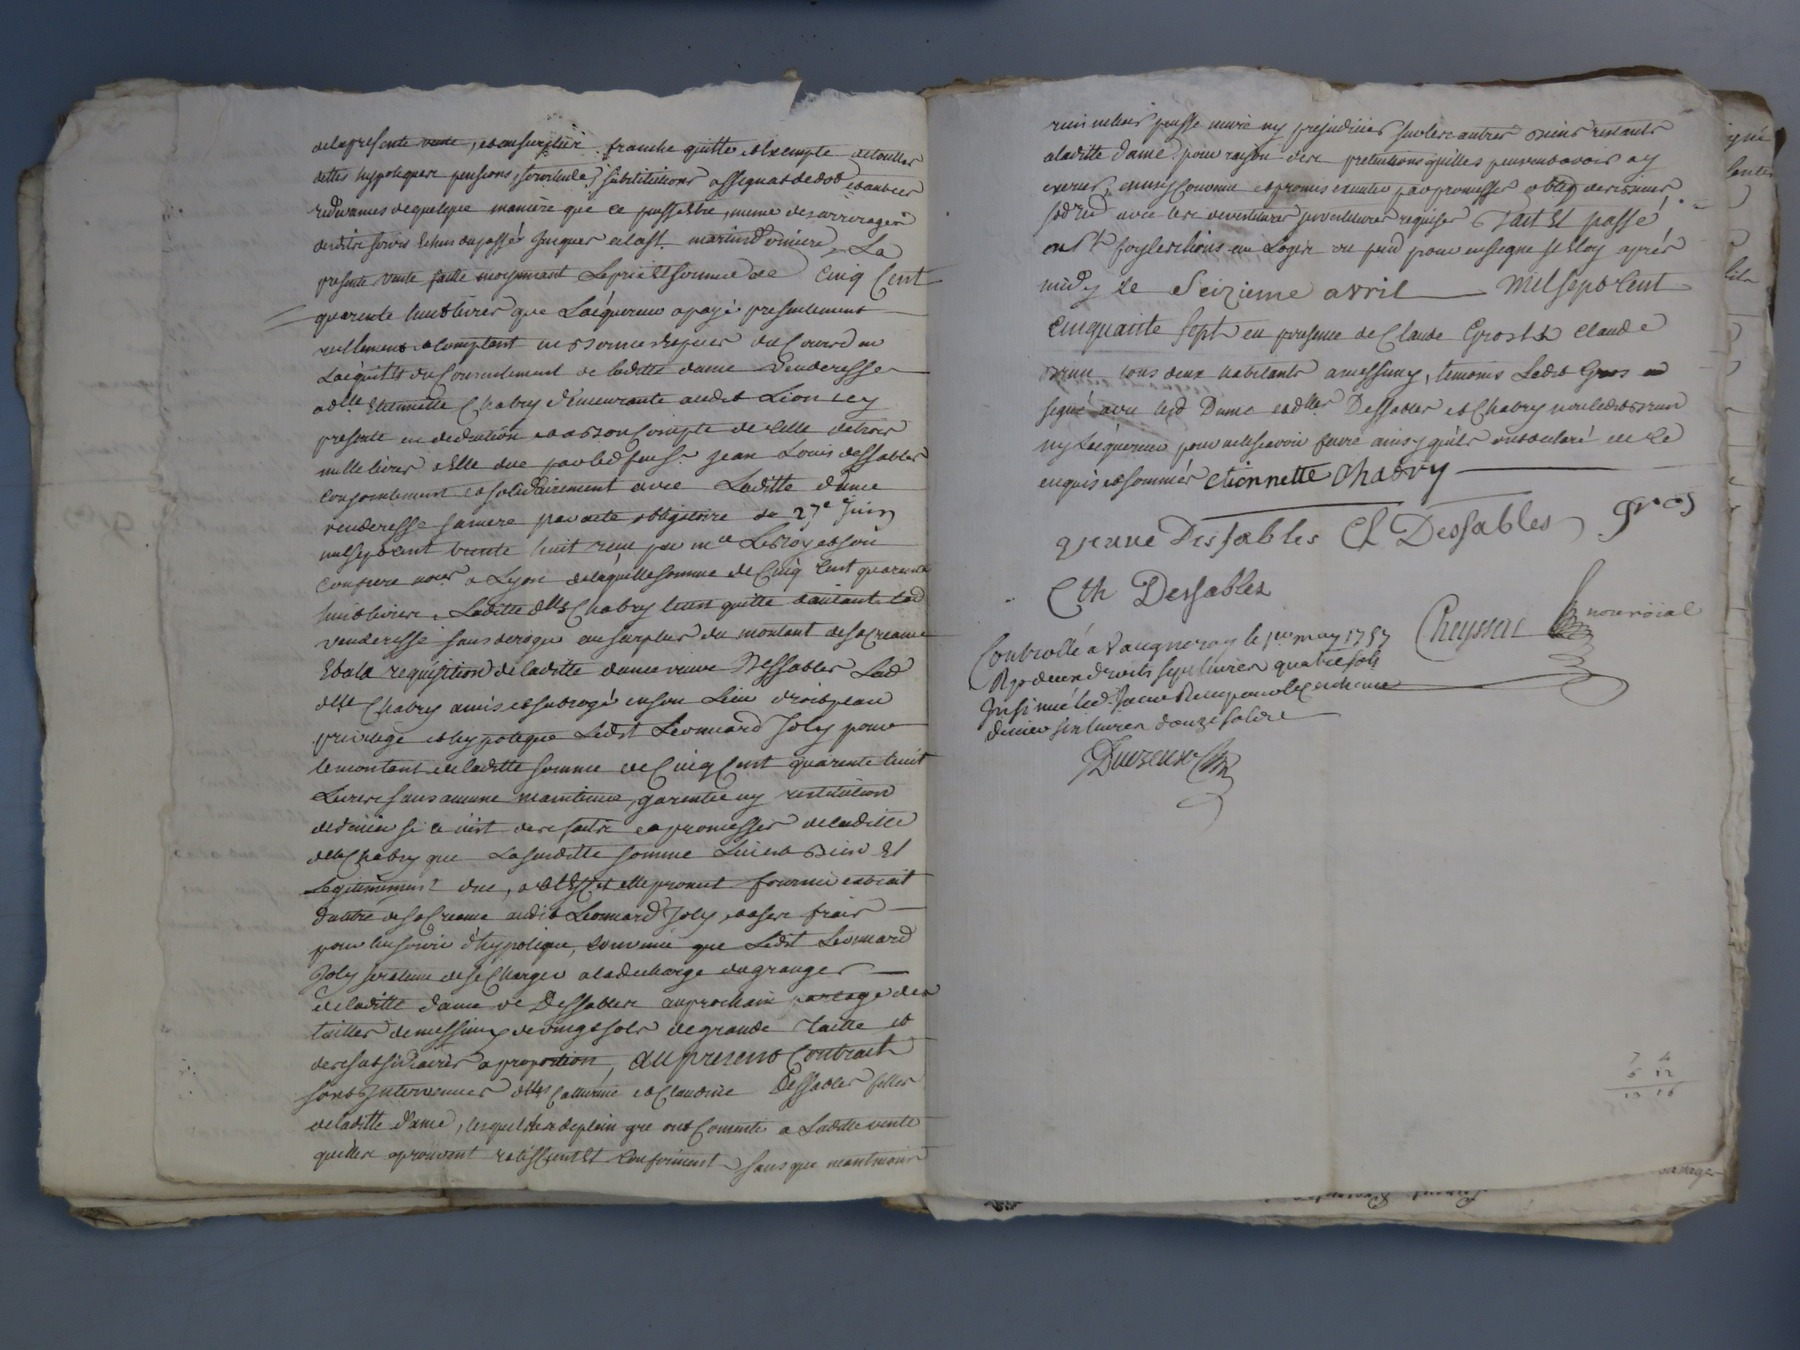 de la presente vente, et au surplus franche quitte et exempte de touttes
dettes hypoteques pensions, servitudes, substitutions assignat de dot et autres
redevances de quelque maniere que ce puisse etre, meme des arrerages
desdits servis echus du passé jusques a la st. martin derniere, La
presente vente faitte moyennant Le prix et somme de Cinq Cent
quarente huit livres que L'acquereur a payé presentement
reellement et comptant en especes du Cours de
L'acquit et du Consentement de laditte dame venderesse
a dlle Etiennette Chabry demeurante audit Lion icy
presente en deduction et a bon Compte de celle de trois
mille livres a Elle due par led feu sr. jean Louis dessables
Conjointement et solidairement avec Laditte dame
venderesse sa mere par acte obligatoire du 27e juin
mil sept cent trente huit recu par me Le Roy et son
Confrere nores a Lyon de laquelle somme de Cinq Cent quarente
huit livres Laditte dlle Chabry tient quitte d'autant lad
venderesse sans deroger au surplus du montant de sa Creance
Et a la requisition de laditte dame veuve Dessables Lad
dlle Chabry a mis et subrogé en son Lieu droit place
privilege et hypoteque Ledit Leonnard Joly pour
le montant de laditte somme de Cinq Cent quarente huit
Livres sans aucune maintenue, garentie ny restitution
de deniers si ce n'est de ses faits et promesses de laditte
dlle Chabry que La susditte somme Lui est bien Et
Legitimement due, a elle promet fournir extrait
du titre de sa Creance audit Leonnard Joly, a ses frais
pour lui servir d'hypoteque, convenu que Ledit Leonnard
Joly sera tenu de se Charger a la decharge du granger
de laditte dame ve Dessables au prochain partage des
tailles de messimy de vingt sols de grande Taille et
des subsidiaires a proportion, au present Contract
sont Intervenues dlles Catherine et Claudine Dessables filles
de laditte Dame, lesquelles de plein gre ont Consenti a Laditte vente
qu'elles aprouvent ratiffient Et Confirment sans que neantmoins
rien puisse nuire ny prejudicier sur les autres biens restants
a laditte dame pour raison des pretentions qu'elles peuvent avoir a y
exercer, ainsy Convenu et promis executer par promesses oblig
avec les requises Fait Et passé
a st foy en Logis ou pend pour enseigne st Eloy après
midy le Seizieme avril Mil sept Cent
Cinquante sept en presence de Claude Gros et Claude
brun tous deux habitants a messimy, temoins Ledit Gros
signé avec lesd Dame et dlles Dessables et Chabry non ledit brun
ny L'acquereur pour ne sçavoir faire ainsy qu'ils ont declaré de ce
enquis et sommés etiennette Chabry
veuve Dessables Cl Dessables gros
Cth Dessables
Cheyssac nore roial
Controllé a Vaugneray le 1er may 1757
Rçu deux droits sept livres quatre sols
Insinué led Jour Reçu pour le Centieme
denier six livres douze sols
7 4
6 12
13 16